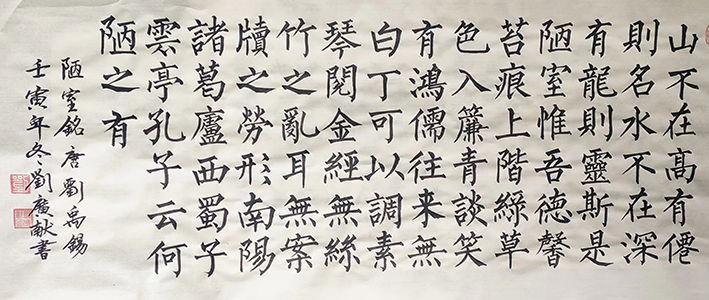 山不在高有僊
則名水不在深
有龍則靈斯是
陋室惟吾德馨
苔痕上階綠草
色入簾青談笑
有鴻儒往来無
白丁可以調素
琴閱金經無絲
竹之亂耳無案
牘之勞形南陽
諸葛廬西蜀子
雲亭孔子云何
陋之有
陋室銘唐劉禹錫
壬寅年冬劉廣献書